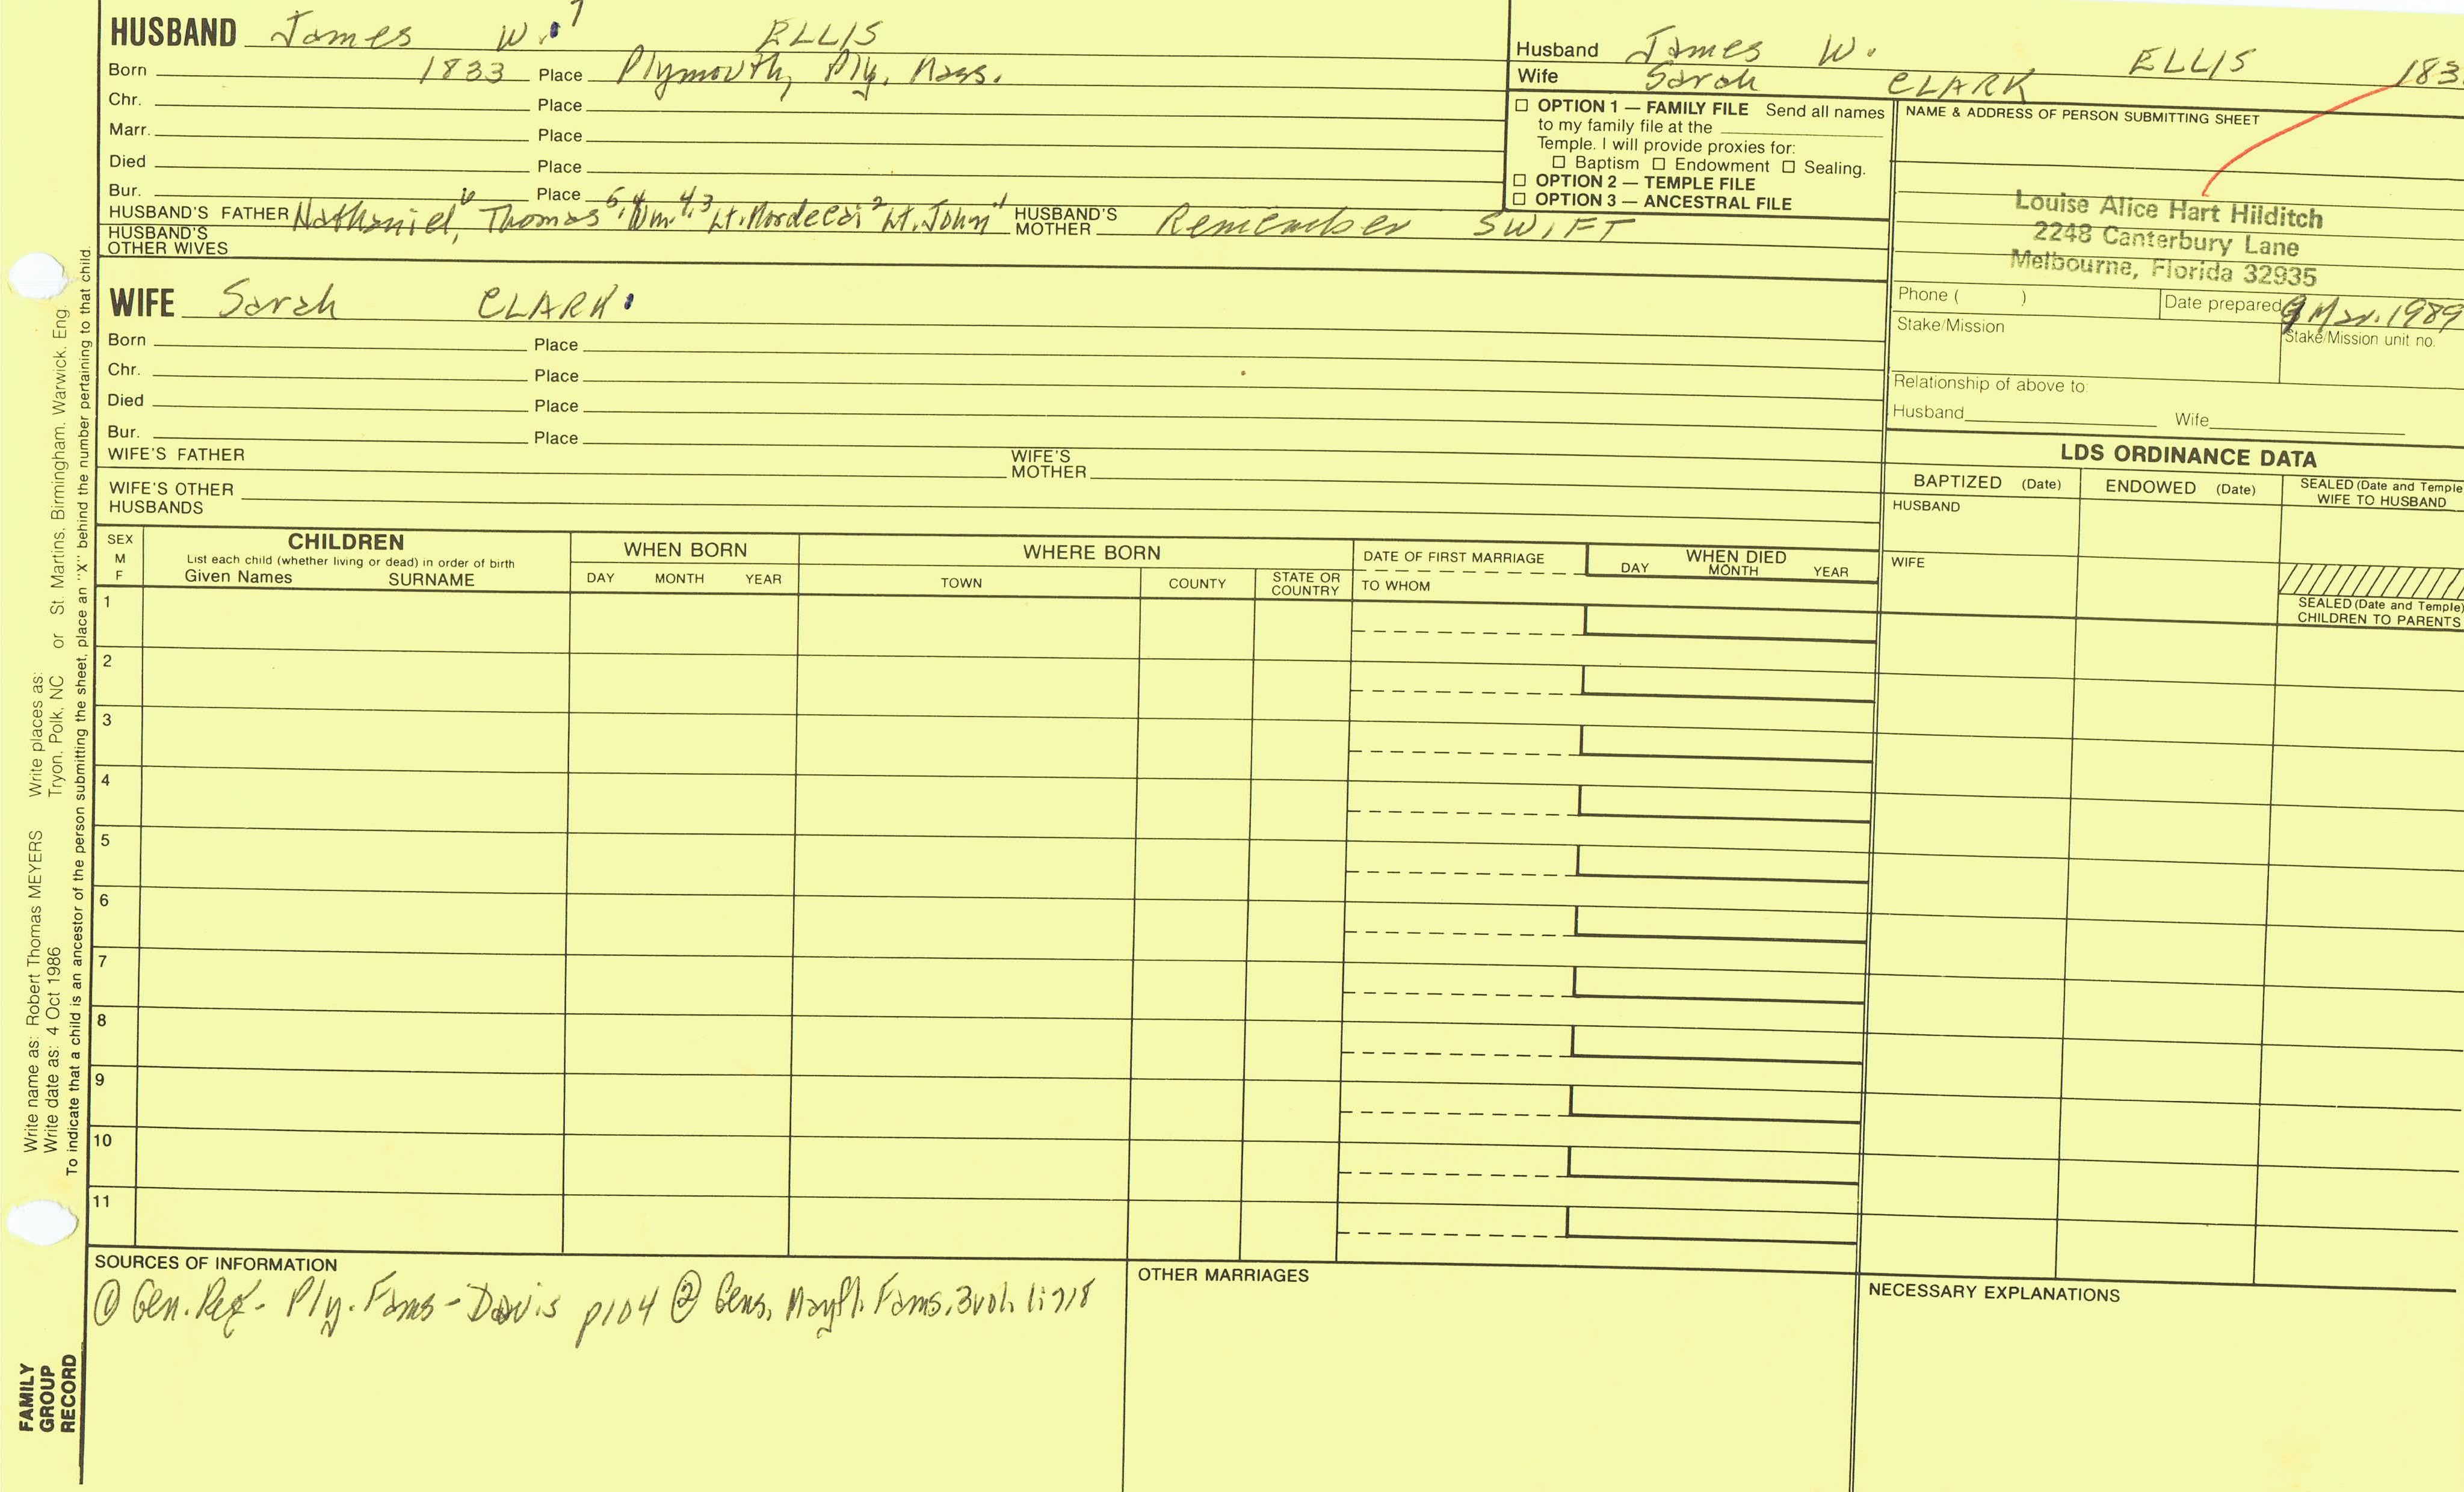 HUSBAND James W. 7 ELLIS
Born 1833 Place Plymouth, Ply, Mass.
Chr. Place
Marr. Place
Died Place
Bur. Place
HUSBAND'S FATHER Nathaniel 6, Thomas 5, Wm 4,3 Lt. Mordecai 2 Lt. John 1 HUSBAND'S MOTHER Remember SWIFT
HUSBAND'S OTHER WIVES
WIFE Sarah CLARK
Born Place
Chr. Place
Died Place
Bur. Place
WIFE'S FATHER WIFE'S MOTHER
WIFE'S OTHER HUSBANDS
Husband James W. ELLIS 183
Wife Sarah CLARK
OPTION 1 — FAMILY FILE Send all names
to my family file at the
Temple. I will provide proxies for:
Baptism Endowment Sealing.
OPTION 2 — TEMPLE FILE
OPTION 3 — ANCESTRAL FILE
NAME & ADDRESS OF PERSON SUBMITTING SHEET
Louise Alice Hart Hilditch
2248 Canterbury Lane
Melbourne, Florida 32935
Phone ( ) Date prepared 9 Mar. 1989
Stake/Mission Stake/Mission unit no.
Relationship of above to:
Husband Wife
LDS ORDINANCE DATA
BAPTIZED (Date) ENDOWED (Date) SEALED (Date and Temple
WIFE TO HUSBAND
HUSBAND
WIFE
SEALED (Date and Temple)
CHILDREN TO PARENTS
SEX
M
F
CHILDREN
List each child (whether living or dead) in order of birth
Given Names SURNAME
WHEN BORN
DAY MONTH YEAR
WHERE BORN
TOWN COUNTY STATE OR COUNTRY
DATE OF FIRST MARRIAGE
TO WHOM
WHEN DIED
DAY MONTH YEAR
1
2
3
4
5
6
7
8
9
10
11
SOURCES OF INFORMATION
① Gen. Reg- Ply. Fams - Davis p104 ② Gens, Mayfl. Fams, 3vol,
OTHER MARRIAGES
NECESSARY EXPLANATIONS
Write name as: Robert Thomas MEYERS Write places as:
Write date as: 4 Oct 1986 Tryon, Polk, NC or St. Martins, Birmingham, Warwick, Eng.
To indicate that a child is an ancestor of the person submitting the sheet, place an "X" behind the number pertaining to that child.
FAMILY
GROUP
RECORD